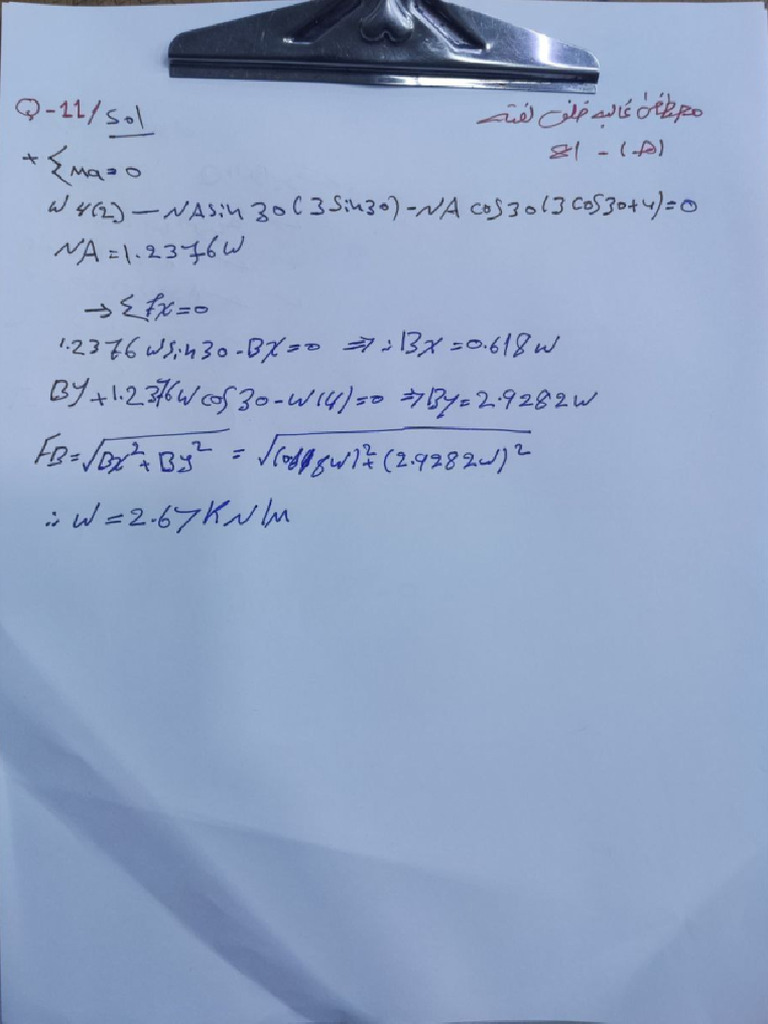 Q-11/ Sol
مصطفى غالب خلف لفته
+ ΣMa=0
W4(2) - NA sin 30 (3 sin 30) - NA cos 30 (3 cos 30+4) = 0
NA = 1.2376W
→ Σfx=0
1.2376 W sin 30 - Bx = 0 ⇒ ∴ Bx = 0.618W
By + 1.2376W cos 30 - W(4) = 0 ⇒ By = 2.9282W
FB = √Bx² + By² = √(0.618W)² + (2.9282W)²
∴ W = 2.67 KN/m